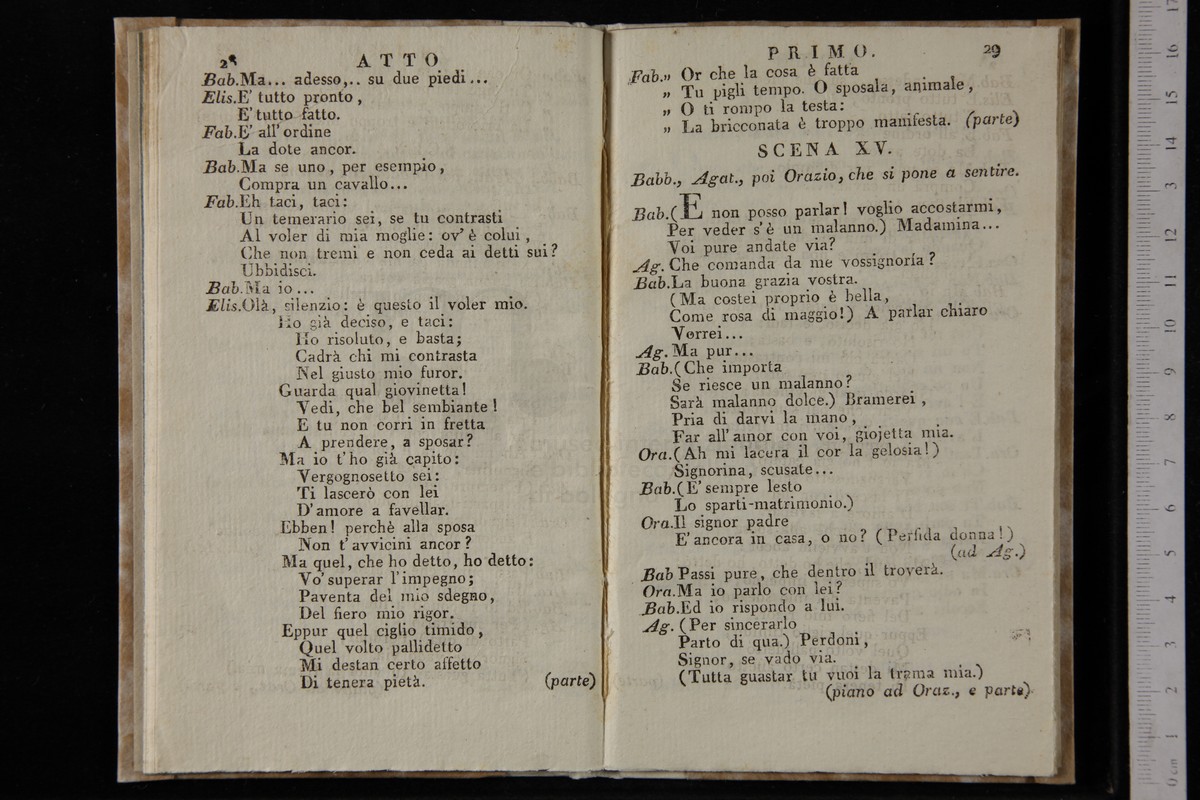 28
ATTO
Bab.Ma... adesso,.. su due piedi...
Elis.E' tutto pronto,
E' tutto fatto.
Fab.E' all' ordine
La dote ancor.
Bab.Ma se uno, per esempio,
Compra un cavallo...
Fab.Eh taci, taci:
Un temerario sei, se tu contrasti
Al voler di mia moglie: ov' è colui,
Che non tremi e non ceda ai detti sui?
Ubbidisci.
Bab.Ma io...
Elis.Olà, silenzio: è questo il voler mio.
Ho già deciso, e taci:
Ho risoluto, e basta;
Cadrà chi mi contrasta
Nel giusto mio furor.
Guarda qual giovinetta!
Vedi, che bel sembiante!
E tu non corri in fretta
A prendere, a sposar?
Ma io t'ho già capito:
Vergognosetto sei:
Ti lascerò con lei
D'amore a favellar.
Ebben! perchè alla sposa
Non t'avvicini ancor?
Ma quel, che ho detto, ho detto:
Vo' superar l'impegno;
Paventa del mio sdegno,
Del fiero mio rigor.
Eppur quel ciglio timido,
Quel volto pallidetto
Mi destan certo affetto
Di tenera pietà. (parte)
PRIMO.
29
Fab.» Or che la cosa è fatta
» Tu pigli tempo. O sposala, animale,
» O ti rompo la testa:
» La bricconata è troppo manifesta. (parte)
SCENA XV.
Babb., Agat., poi Orazio, che si pone a sentire.
Bab.(E non posso parlar! voglio accostarmi,
Per veder s'è un malanno.) Madamina...
Voi pure andate via?
Ag. Che comanda da me vossignoría?
Bab.La buona grazia vostra.
(Ma costei proprio è bella,
Come rosa di maggio!) A parlar chiaro
Vorrei...
Ag. Ma pur...
Bab.(Che importa
Se riesce un malanno?
Sarà malanno dolce.) Bramerei,
Pria di darvi la mano,
Far all' amor con voi, giojetta mia.
Ora.(Ah mi lacera il cor la gelosia!)
Signorina, scusate...
Bab.(E' sempre lesto
Lo sparti-matrimonio.)
Ora.Il signor padre
E' ancora in casa, o no? (Perfida donna!)
(ad Ag.)
Bab Passi pure, che dentro il troverà.
Ora.Ma io parlo con lei?
Bab.Ed io rispondo a lui.
Ag. (Per sincerarlo
Parto di qua.) Perdoni,
Signor, se vado via.
(Tutta guastar tu vuoi la trama mia.)
(piano ad Oraz., e parte)